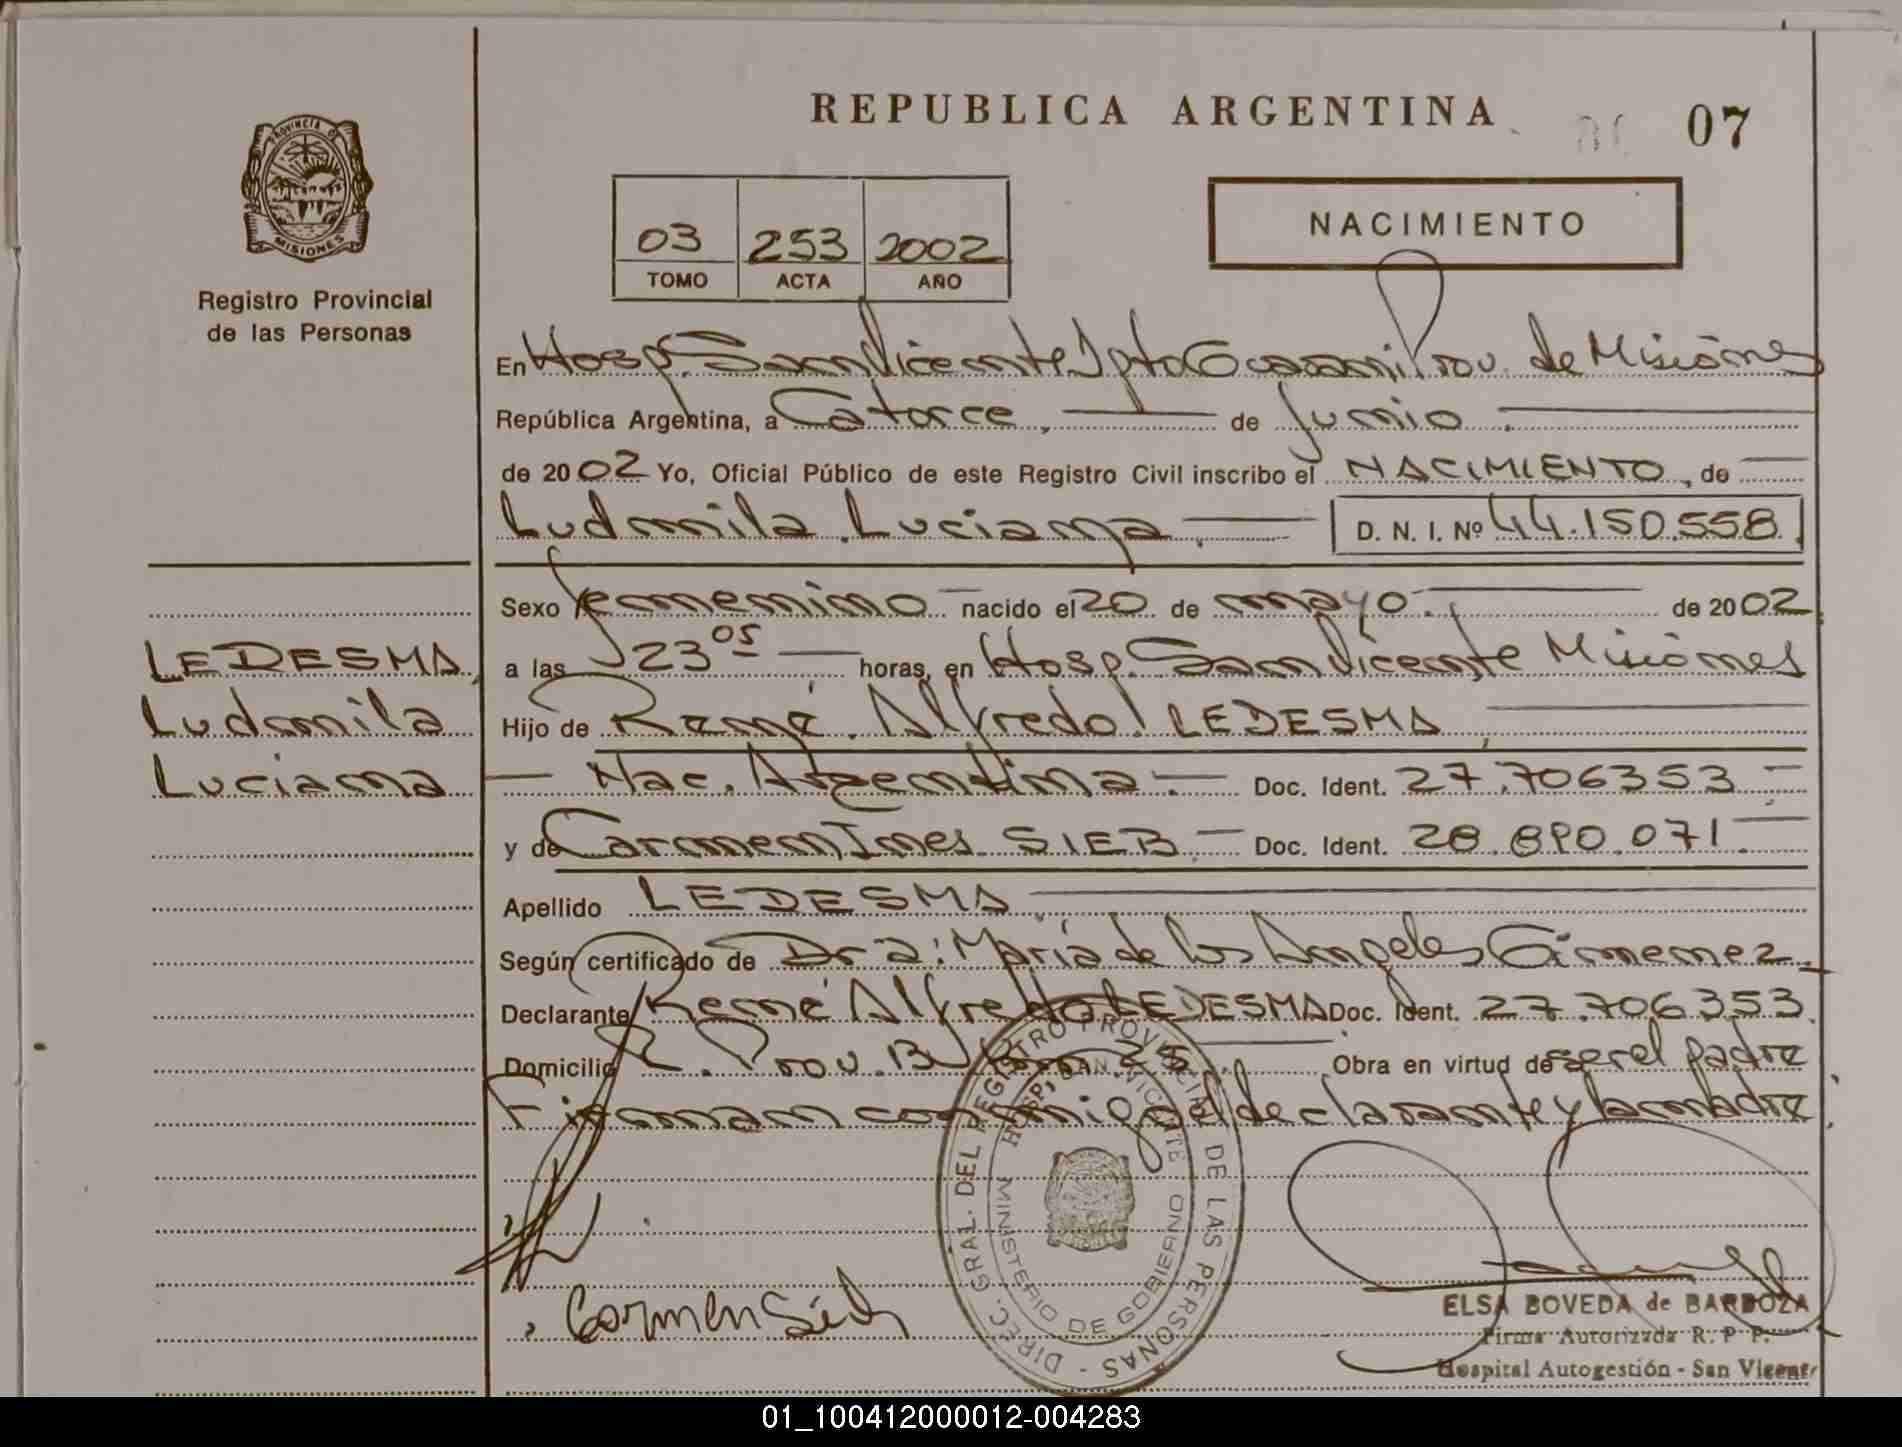 REPUBLICA ARGENTINA
07
PROVINCIA DE
MISIONES
Registro Provincial
de las Personas
03 253 2002
TOMO ACTA AÑO
NACIMIENTO
En Hosp. San Vicente Dpto Guaraní Prov. de Misiones
República Argentina, a Catorce de Junio
de 2002 Yo, Oficial Público de este Registro Civil inscribo el NACIMIENTO, de
Ludmila Luciana D. N. I. Nº 44.150.558
Sexo femenino nacido el 20 de mayo de 2002
LEDESMA
Ludmila
Luciana
a las 23 05 horas, en Hosp. San Vicente Misiones
Hijo de René Alfredo LEDESMA
Nac. Argentina Doc. Ident. 27.706353
y de Carmen Ines SIEB Doc. Ident. 28.890.071
Apellido LEDESMA
Según certificado de Dra: María de los Angeles Gimenez
Declarante René Alfredo LEDESMA Doc. Ident. 27.706353
Domicilio R. Prov. 13 Km 25 Obra en virtud de ser el padre
Firman conmigo el declarante y la madre
DIREC. GRAL. DEL REGISTRO PROVINCIAL DE LAS PERSONAS
HOSP. SAN VICENTE
MINISTERIO DE GOBIERNO
Carmen Sieb
ELSA BOVEDA de BARBOZA
Firma Autorizada R. P. P.
Hospital Autogestión - San Vicente
01_100412000012-004283